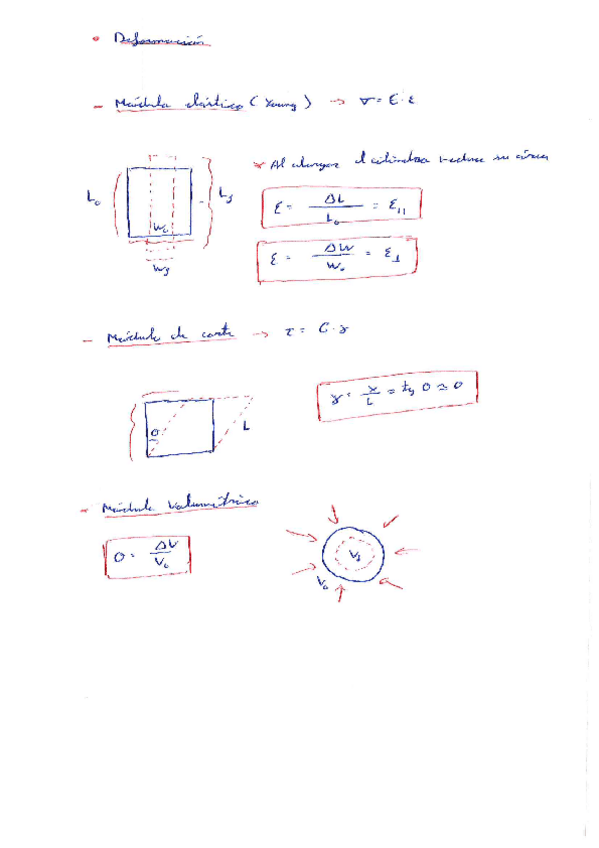 • Deformación
- Módulo elástico (Young) → σ = E · ε
* Al alargar el cilindro reduce su área
L₀
L_f
W₀
W_f
ε = ΔL / L₀ = ε_∥
ε = ΔW / W₀ = ε_⊥
- Módulo de corte → τ = G · γ
θ
L
γ = x / L = tg θ ≈ θ
- Módulo volumétrico
θ = ΔV / V₀
V_f
V₀